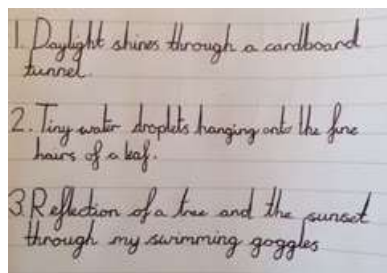 1. Daylight shines through a cardboard
tunnel.
2. Tiny water droplets hanging onto the fine
hairs of a leaf.
3. Reflection of a tree and the sunset
through my swimming goggles